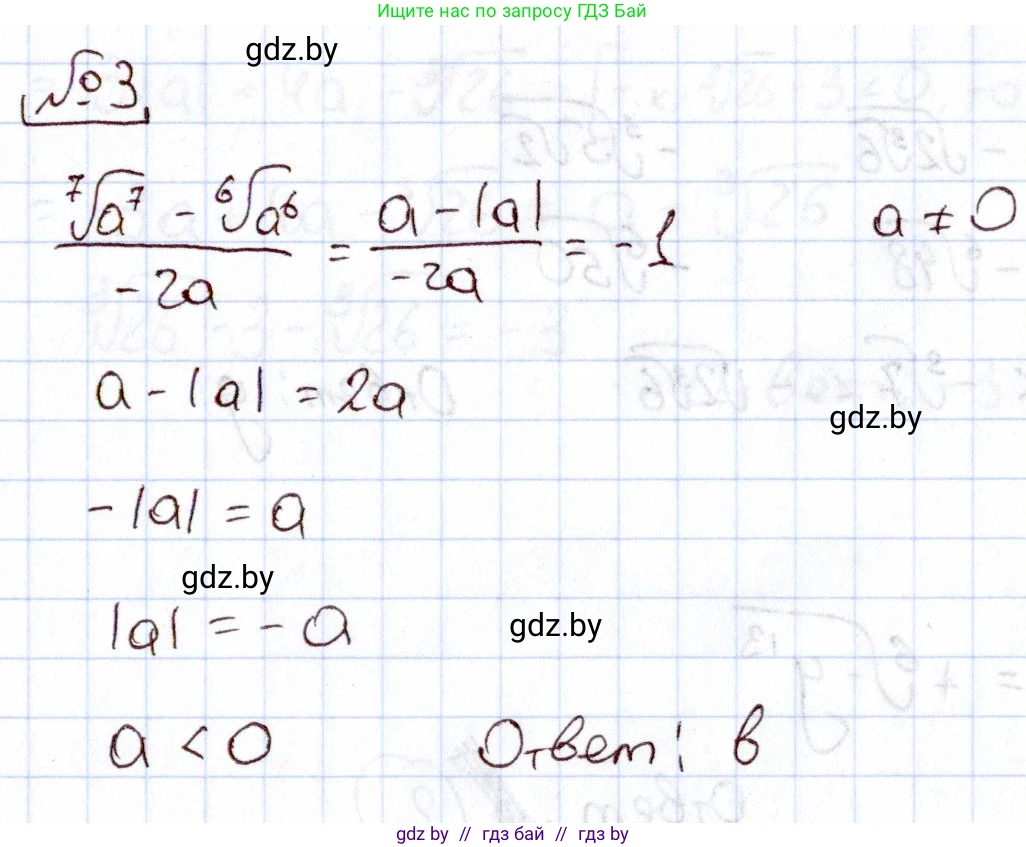 Ищите нас по запросу ГДЗ Бай
gdz.by
№3
(⁷√a⁷ - ⁶√a⁶) / (-2a) = (a - |a|) / (-2a) = -1    a ≠ 0
a - |a| = 2a
gdz.by
-|a| = a
gdz.by
|a| = -a
gdz.by
a < 0    Ответ: в
gdz by // гдз бай // gdz by